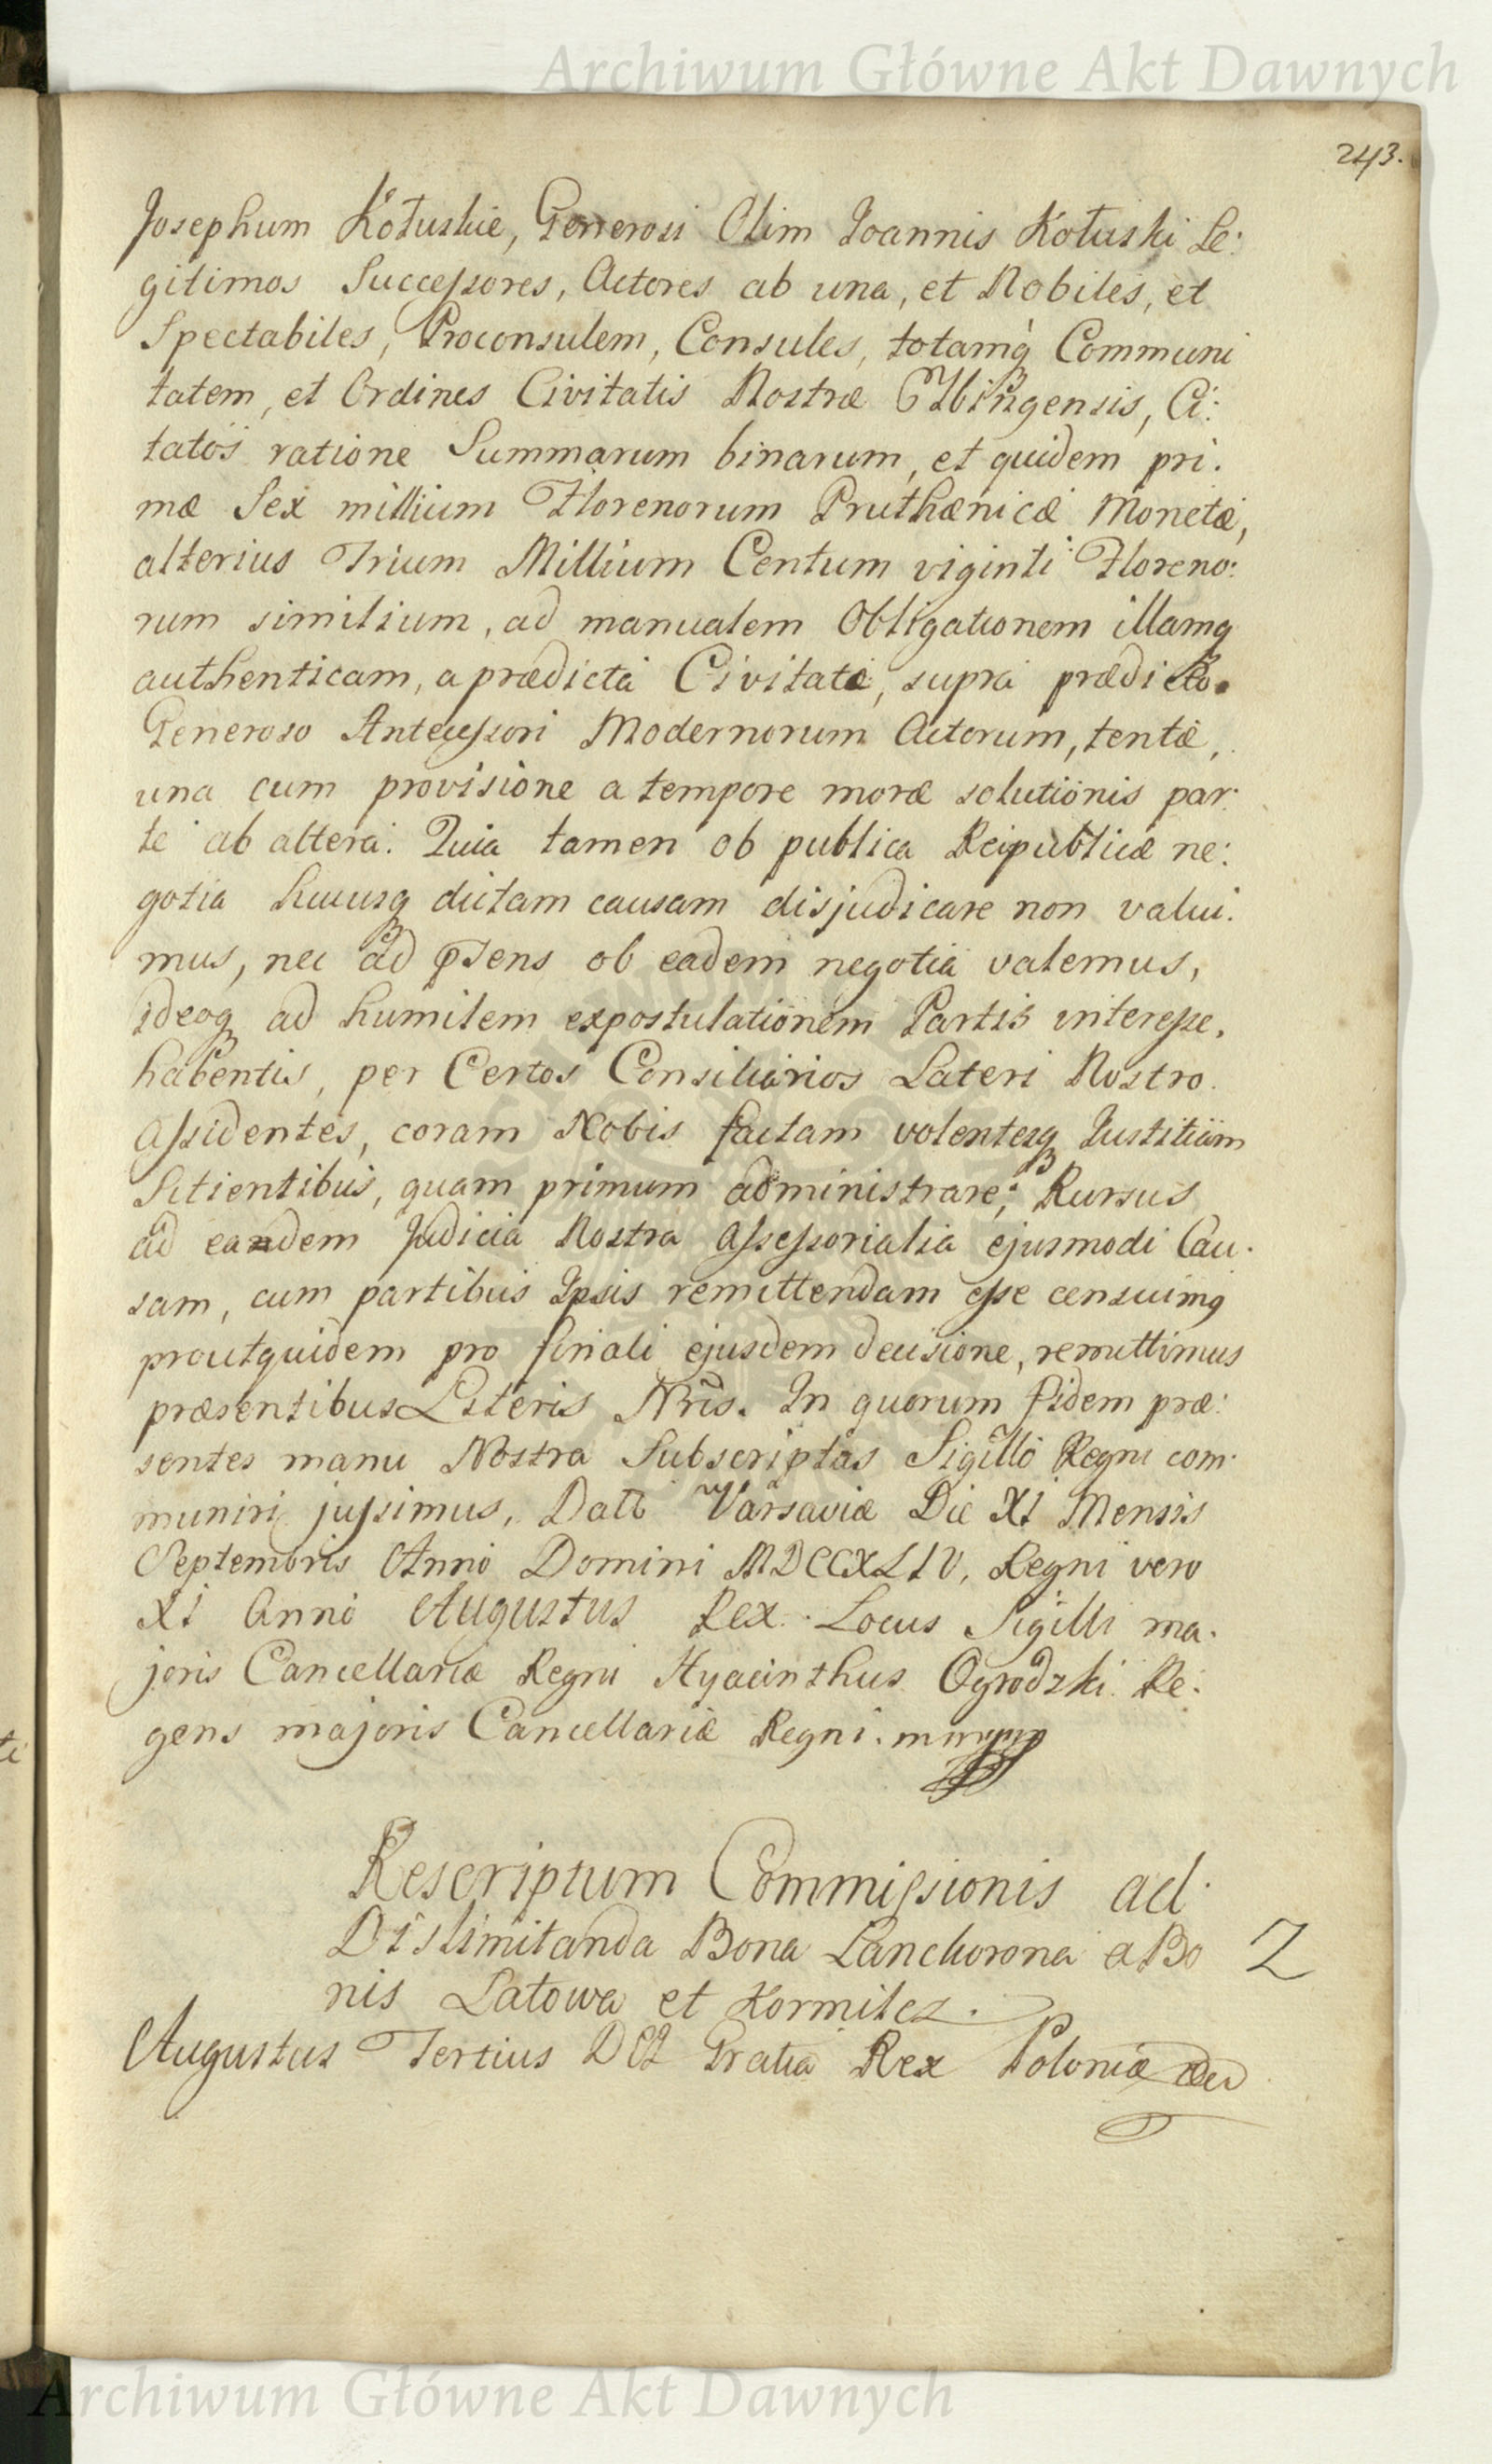 Archiwum Główne Akt Dawnych
243.
Josephum Kotuskie, Generosi Olim Joannis Kotuski Le:
gitimos Successores, Actores ab una, et Nobiles, et
Spectabiles, Proconsulem, Consules, totamq́ Communi
tatem, et Ordines Civitatis Nostræ Elbingensis, Ci:
tatos ratione Summarum binarum, et quidem pri.
mæ Sex millium Florenorum Pruthænicæ Monetæ,
alterius Trium Millium Centum viginti Floreno:
rum similium, ad manualem Obligationem illamq
authenticam, a prædicta Civitate, supra prædicto
Generoso Antecessori Modernorum Actorum, tentæ,
una cum provisione a tempore moræ solutionis par:
te ab altera. Quia tamen ob publica Reipublicæ ne:
gotia hucusq dictam causam disjudicare non valui.
mus, nec ad pſens ob eadem negotia valemus,
ideoq ad humilem expostulationem Partis interesse,
habentis, per Certos Consiliarios Lateri Nostro
Assidentes, coram Nobis factam volentesq Justitiam
Sitientibus, quam primum administrare; Rursus
ad eandem Judicia Nostra Assessorialia ejusmodi Cau.
sam, cum partibus Ipsis remittendam esse censuimq
proutquidem pro finali ejusdem decisione, remittimus
præsentibus Literis Nris. In quorum fidem præ:
sentes manu Nostra Subscriptas Sigillo Regni com.
muniri jussimus, Datt Varsaviæ Die XI Mensis
Septembris Anno Domini MDCCXLIV, Regni vero
XI Anno Augustus Rex. Locus Sigilli ma.
joris Cancellariæ Regni Hyacinthus Ogrodzki Re:
gens majoris Cancellariæ Regni. mmpp
Rescriptum Commissionis ad
Dislimitanda Bona Lanckorona a Bo 2
nis Latowa et Kormilcz.
Augustus Tertius DEI Gratia Rex Poloniæ
Archiwum Główne Akt Dawnych